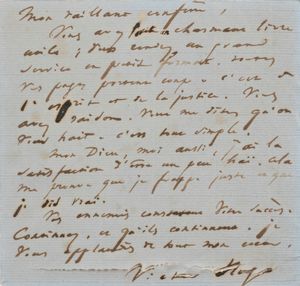 Mon vaillant confrère,
Vous avez fait un charmant livre
utile ; vous rendez un grand
service en petit format. Toutes
vos pages portent coup. C'est de
l'esprit et de la justice. Vous
avez raison. Vous me dites qu'on
vous hait. C'est tout simple.
Mon Dieu, moi aussi j'ai la
satisfaction d'être un peu haï. Cela
me prouve que je frappe juste et que
je dis vrai.
Vos ennemis constatent votre succès.
Continuez, et qu'ils continuent. Je
vous applaudis de tout mon cœur.
Victor Hugo